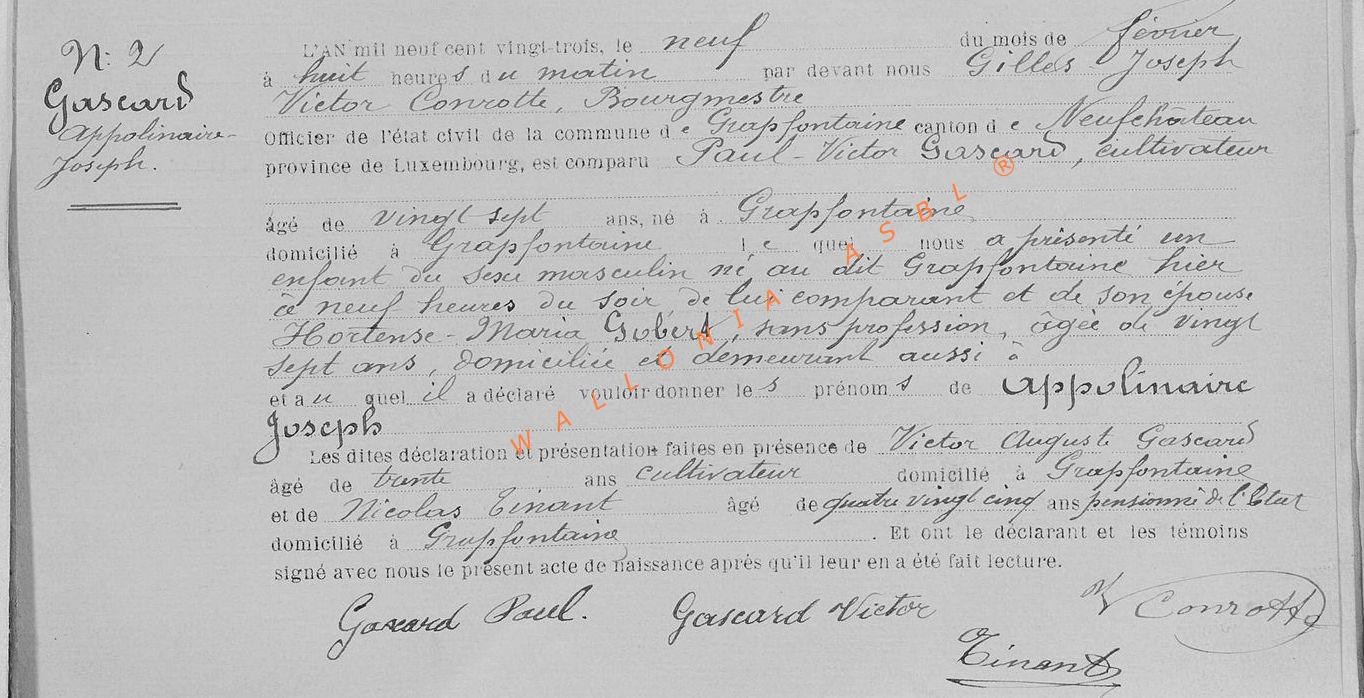 N: 2
Gascard
Appolinaire-
Joseph.
L'AN mil neuf cent vingt-trois, le neuf du mois de février
à huit heures du matin par devant nous Gilles Joseph
Victor Conrotte, Bourgmestre
Officier de l'état civil de la commune de Grapfontaine canton de Neufchâteau
province de Luxembourg, est comparu Paul-Victor Gascard, cultivateur
âgé de vingt sept ans, né à Grapfontaine
domicilié à Grapfontaine lequel nous a présenté un
enfant du sexe masculin né au dit Grapfontaine hier
à neuf heures du soir de lui comparant et de son épouse
Hortense-Maria Gobert, sans profession, âgée de vingt
sept ans, domiciliée et demeurant aussi à
et au quel il a déclaré vouloir donner les prénoms de Appolinaire
Joseph
Les dites déclaration et présentation faites en présence de Victor Auguste Gascard
âgé de trente ans cultivateur domicilié à Grapfontaine
et de Nicolas Tinant âgé de quatre vingt cinq ans pensionné de l'Etat
domicilié à Grapfontaine. Et ont le déclarant et les témoins
signé avec nous le présent acte de naissance après qu'il leur en a été fait lecture.
Gascard Paul. Gascard Victor V Conrotte
Tinant
WALLONIA ASBL ®